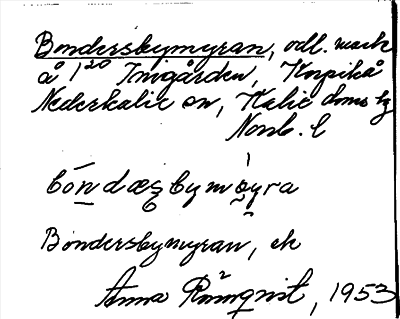 Bondersbymyran, odl. mark
å 1²⁰ Inigården, Korpikå
Nederkalix sn, Kalix doms hg
Norrb. l
bón dæʂbymøyra
Bondersbymyran, ek
Anna Rönnqvist, 1953